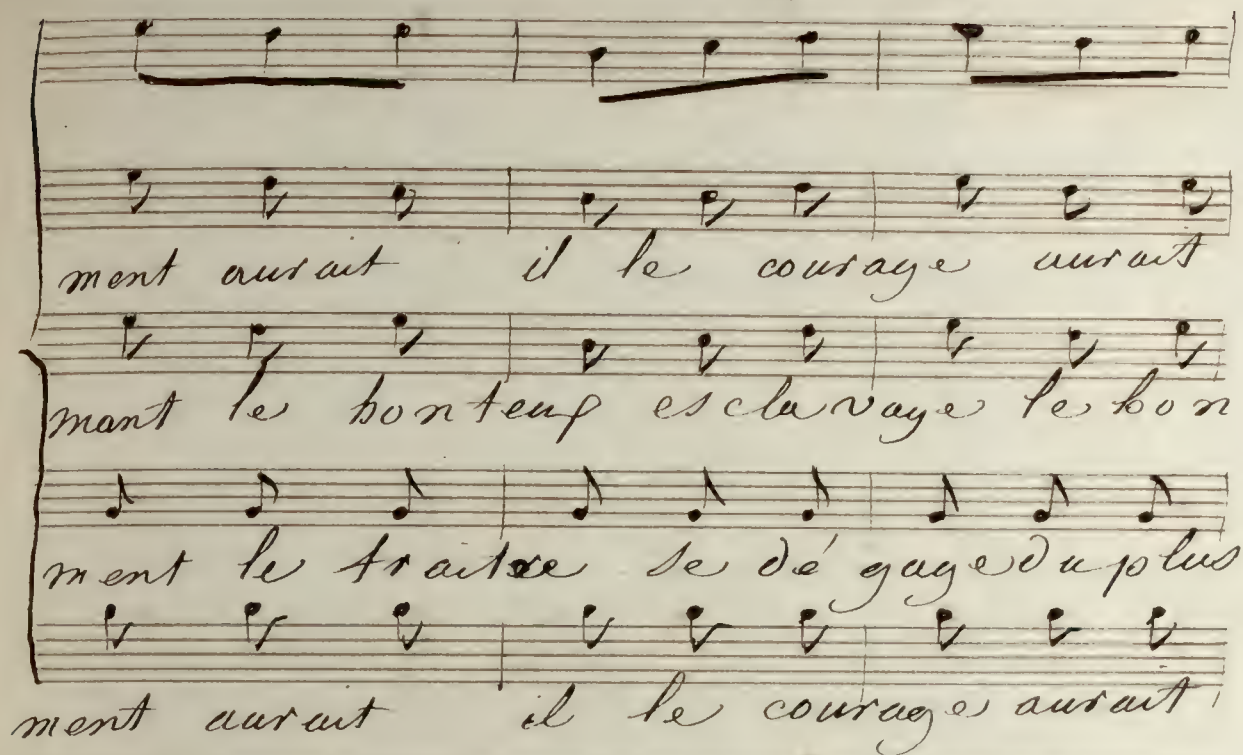 ment aurait il le courage aurait
mant le honteux es cla vage le hon
ment le traitre se dé gage du plus
ment aurait il le courage aurait